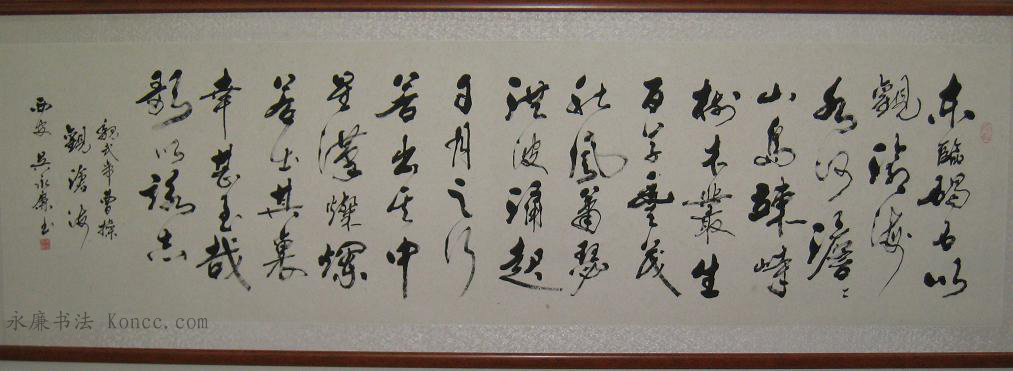 東臨碣石以
觀滄海
水何澹澹
山島竦峙
樹木叢生
百草豐茂
秋風蕭瑟
洪波涌起
日月之行
若出其中
星漢燦爛
若出其裏
幸甚至哉
歌以詠志
魏武帝曹操
觀滄海
西安吳永廉書
永廉书法 Koncc.com